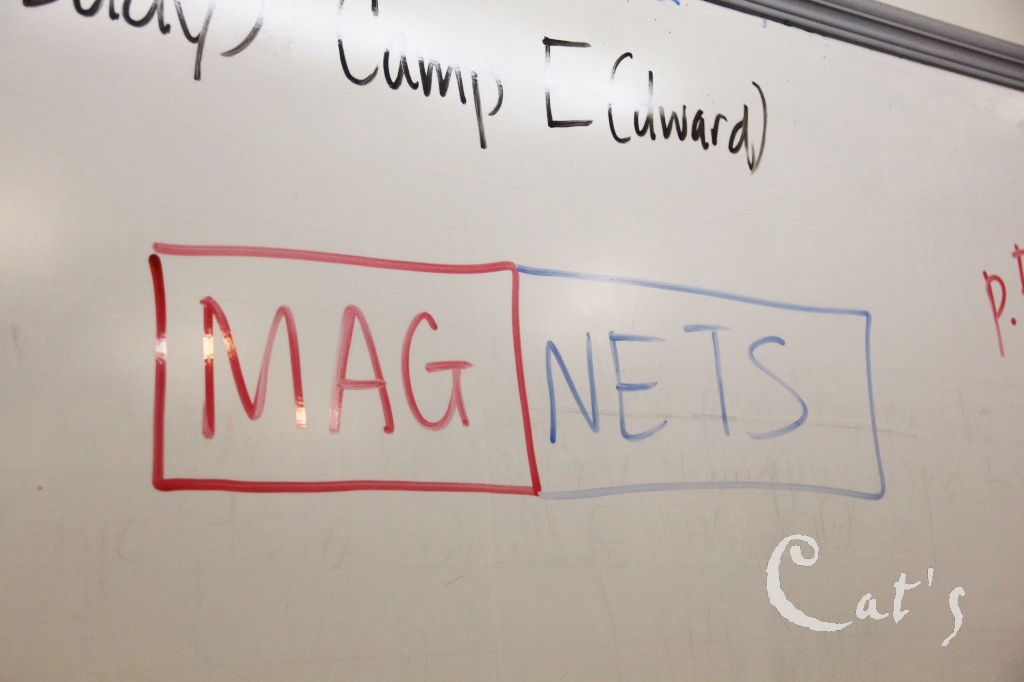 Camp E(dward)
MAG NETS
Cat's